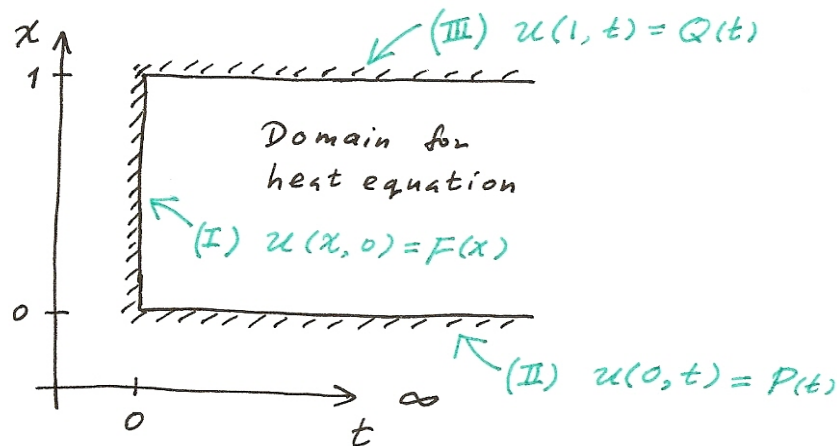 x
(III) u(1, t) = Q(t)
1
Domain for
heat equation
(I) u(x, 0) = F(x)
0
(II) u(0, t) = P(t)
0
t
∞